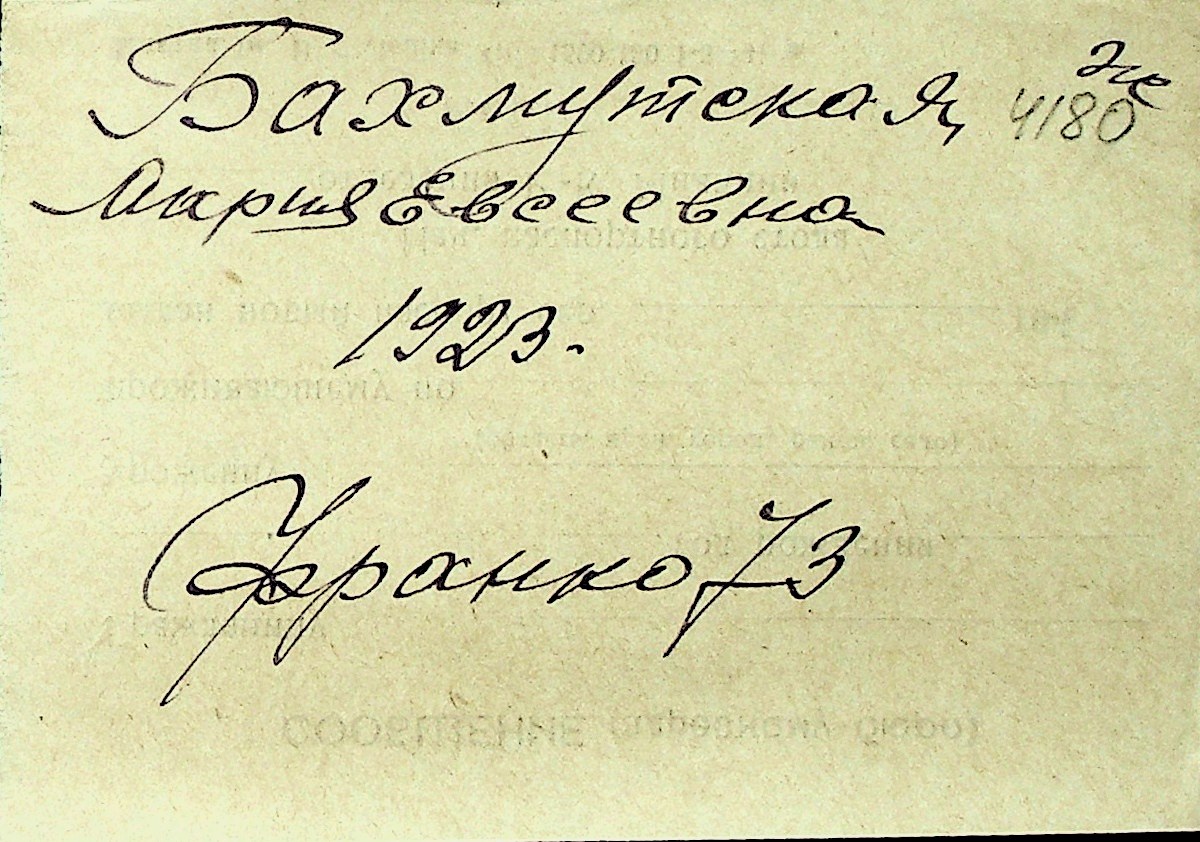 Бахмутская, 4180
Мария Евсеевна
1923.
Франко 73